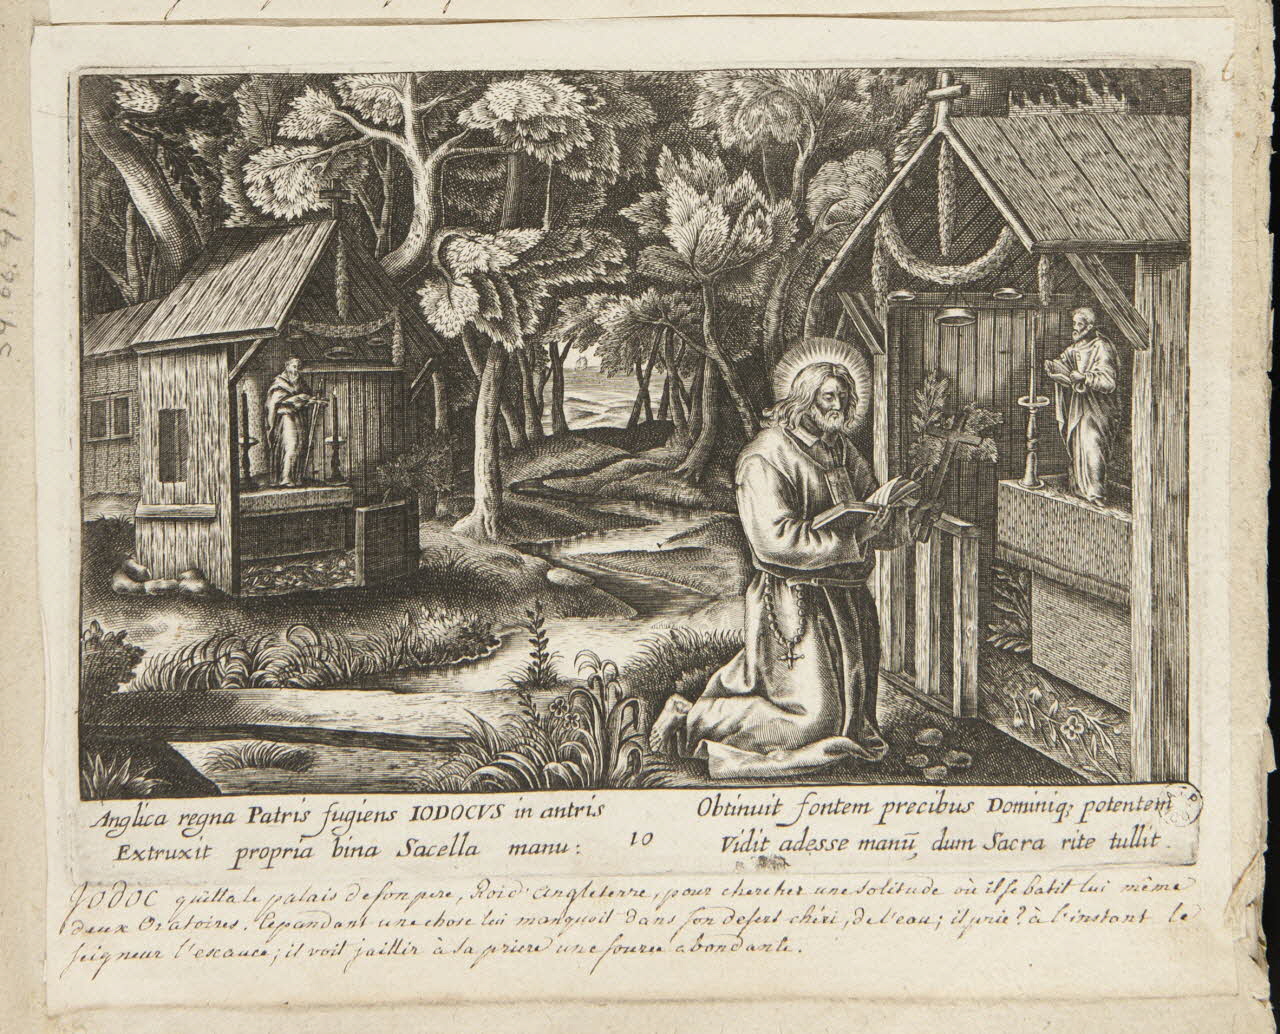 Anglica regna Patris fugiens IODOCVS in antris
Extruxit propriâ bina Sacella manu:
10
Obtinuit fontem precibus Dominiq; potentem
Vidit adesse manū, dum Sacra rite tullit.
JODOC quitta le palais de son pere, Roi d'Angleterre, pour chercher une Solitude où il se batit lui même
deux Oratoires. Cependant une chose lui manquoit dans son desert chéri, de l'eau; il prie? à l'instant le
seigneur l'exauce; il voit jaillir à sa priere une source abondante.